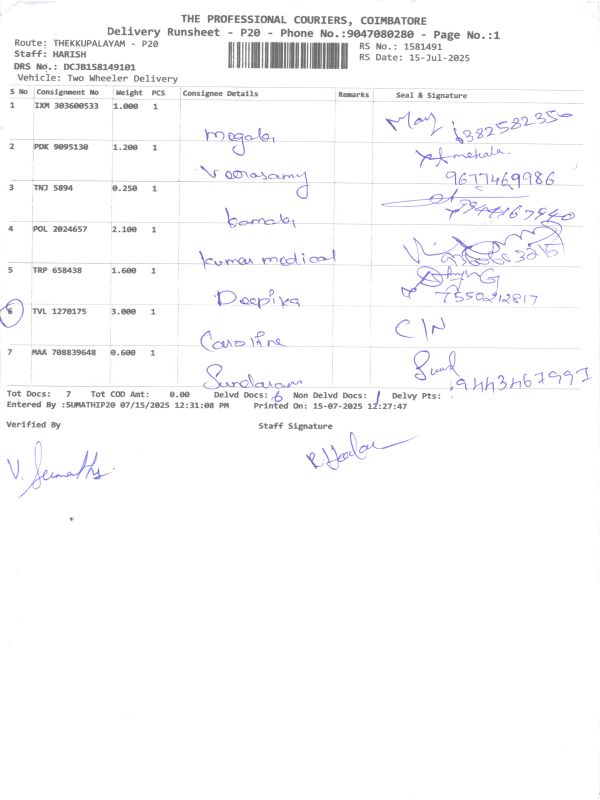 THE PROFESSIONAL COURIERS, COIMBATORE
Delivery Runsheet - P20 - Phone No.:9047080280 - Page No.:1
Route: THEKKUPALAYAM - P20
Staff: HARISH
DRS No.: DCJB158149101
Vehicle: Two Wheeler Delivery
RS No.: 1581491
RS Date: 15-Jul-2025
S No Consignment No Weight PCS Consignee Details Remarks Seal & Signature
1 IXM 303600533 1.000 1 6382582350
2 PDK 9095130 1.200 1 Veerasamy mehala. 9677469986
3 TNJ 5894 0.250 1
4 POL 2024657 2.100 1 kumar medical
5 TRP 658438 1.600 1 Deepika 7550212817
6 TVL 1270175 3.000 1 Caroline C/N
7 MAA 708839648 0.600 1 Sundaram 9443467997
Tot Docs: 7 Tot COD Amt: 0.00 Delvd Docs: 6 Non Delvd Docs: 1 Delvy Pts:
Entered By :SUMATHIP20 07/15/2025 12:31:08 PM Printed On: 15-07-2025 12:27:47
Verified By Staff Signature
V. Sumathy.